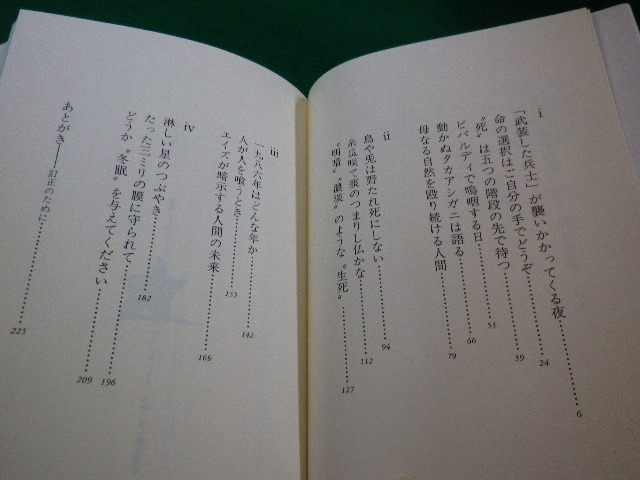 i
「武装した兵士」が襲いかかってくる夜 6
命の選択はご自分の手でどうぞ 24
〝死〟は五つの階段の先で待つ 39
ビバルディで嗚咽する日 53
動かぬタカアシガニは語る 66
母なる自然を殴り続ける人間 79
ii
鳥や兎は野たれ死にしない 94
糸瓜咲て痰のつまりし仏かな 112
〝明暗〟〝混沌〟のような〝生死〟 127
iii
一九八六年はどんな年か 142
人が人を喰うとき 155
エイズが暗示する人間の未来 169
iv
淋しい星のつぶやき 182
たった三ミリの膜に守られて 196
どうか〝冬眠〟を与えてください 209
あとがき――訂正のために 225